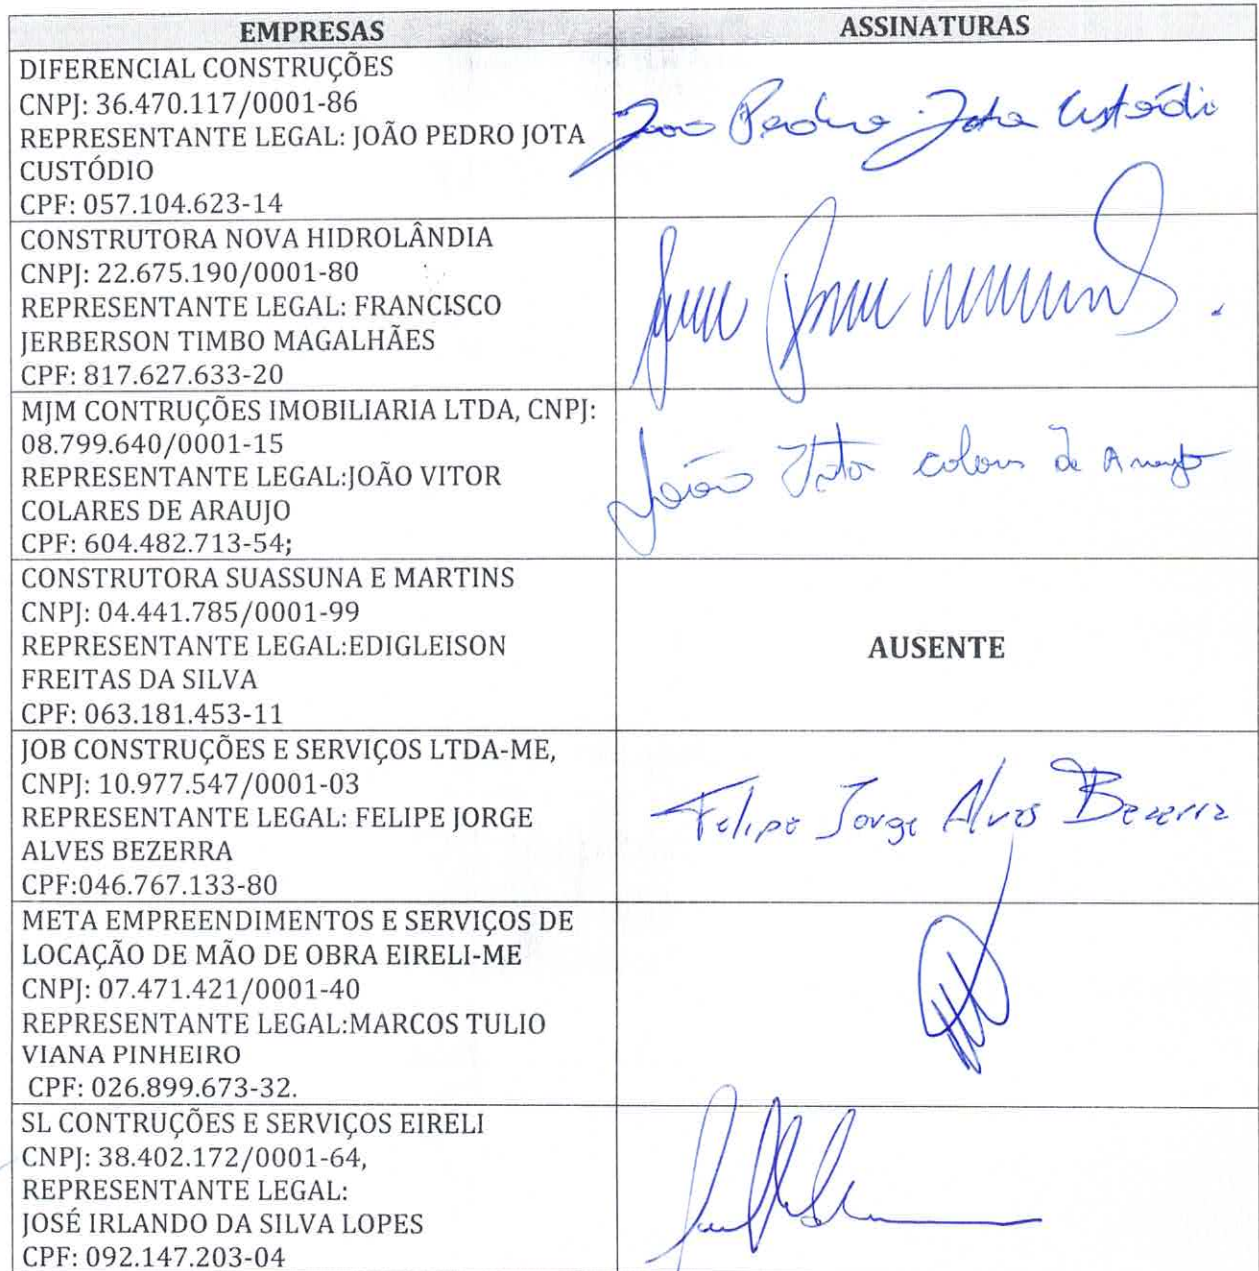 EMPRESAS
ASSINATURAS
DIFERENCIAL CONSTRUÇÕES
CNPJ: 36.470.117/0001-86
REPRESENTANTE LEGAL: JOÃO PEDRO JOTA
CUSTÓDIO
CPF: 057.104.623-14
João Pedro Jota Custódio
CONSTRUTORA NOVA HIDROLÂNDIA
CNPJ: 22.675.190/0001-80
REPRESENTANTE LEGAL: FRANCISCO
JERBERSON TIMBO MAGALHÃES
CPF: 817.627.633-20
MJM CONTRUÇÕES IMOBILIARIA LTDA, CNPJ:
08.799.640/0001-15
REPRESENTANTE LEGAL:JOÃO VITOR
COLARES DE ARAUJO
CPF: 604.482.713-54;
João Vitor colares de Araujo
CONSTRUTORA SUASSUNA E MARTINS
CNPJ: 04.441.785/0001-99
REPRESENTANTE LEGAL:EDIGLEISON
FREITAS DA SILVA
CPF: 063.181.453-11
AUSENTE
JOB CONSTRUÇÕES E SERVIÇOS LTDA-ME,
CNPJ: 10.977.547/0001-03
REPRESENTANTE LEGAL: FELIPE JORGE
ALVES BEZERRA
CPF:046.767.133-80
Felipe Jorge Alves Bezerra
META EMPREENDIMENTOS E SERVIÇOS DE
LOCAÇÃO DE MÃO DE OBRA EIRELI-ME
CNPJ: 07.471.421/0001-40
REPRESENTANTE LEGAL:MARCOS TULIO
VIANA PINHEIRO
CPF: 026.899.673-32.
SL CONTRUÇÕES E SERVIÇOS EIRELI
CNPJ: 38.402.172/0001-64,
REPRESENTANTE LEGAL:
JOSÉ IRLANDO DA SILVA LOPES
CPF: 092.147.203-04